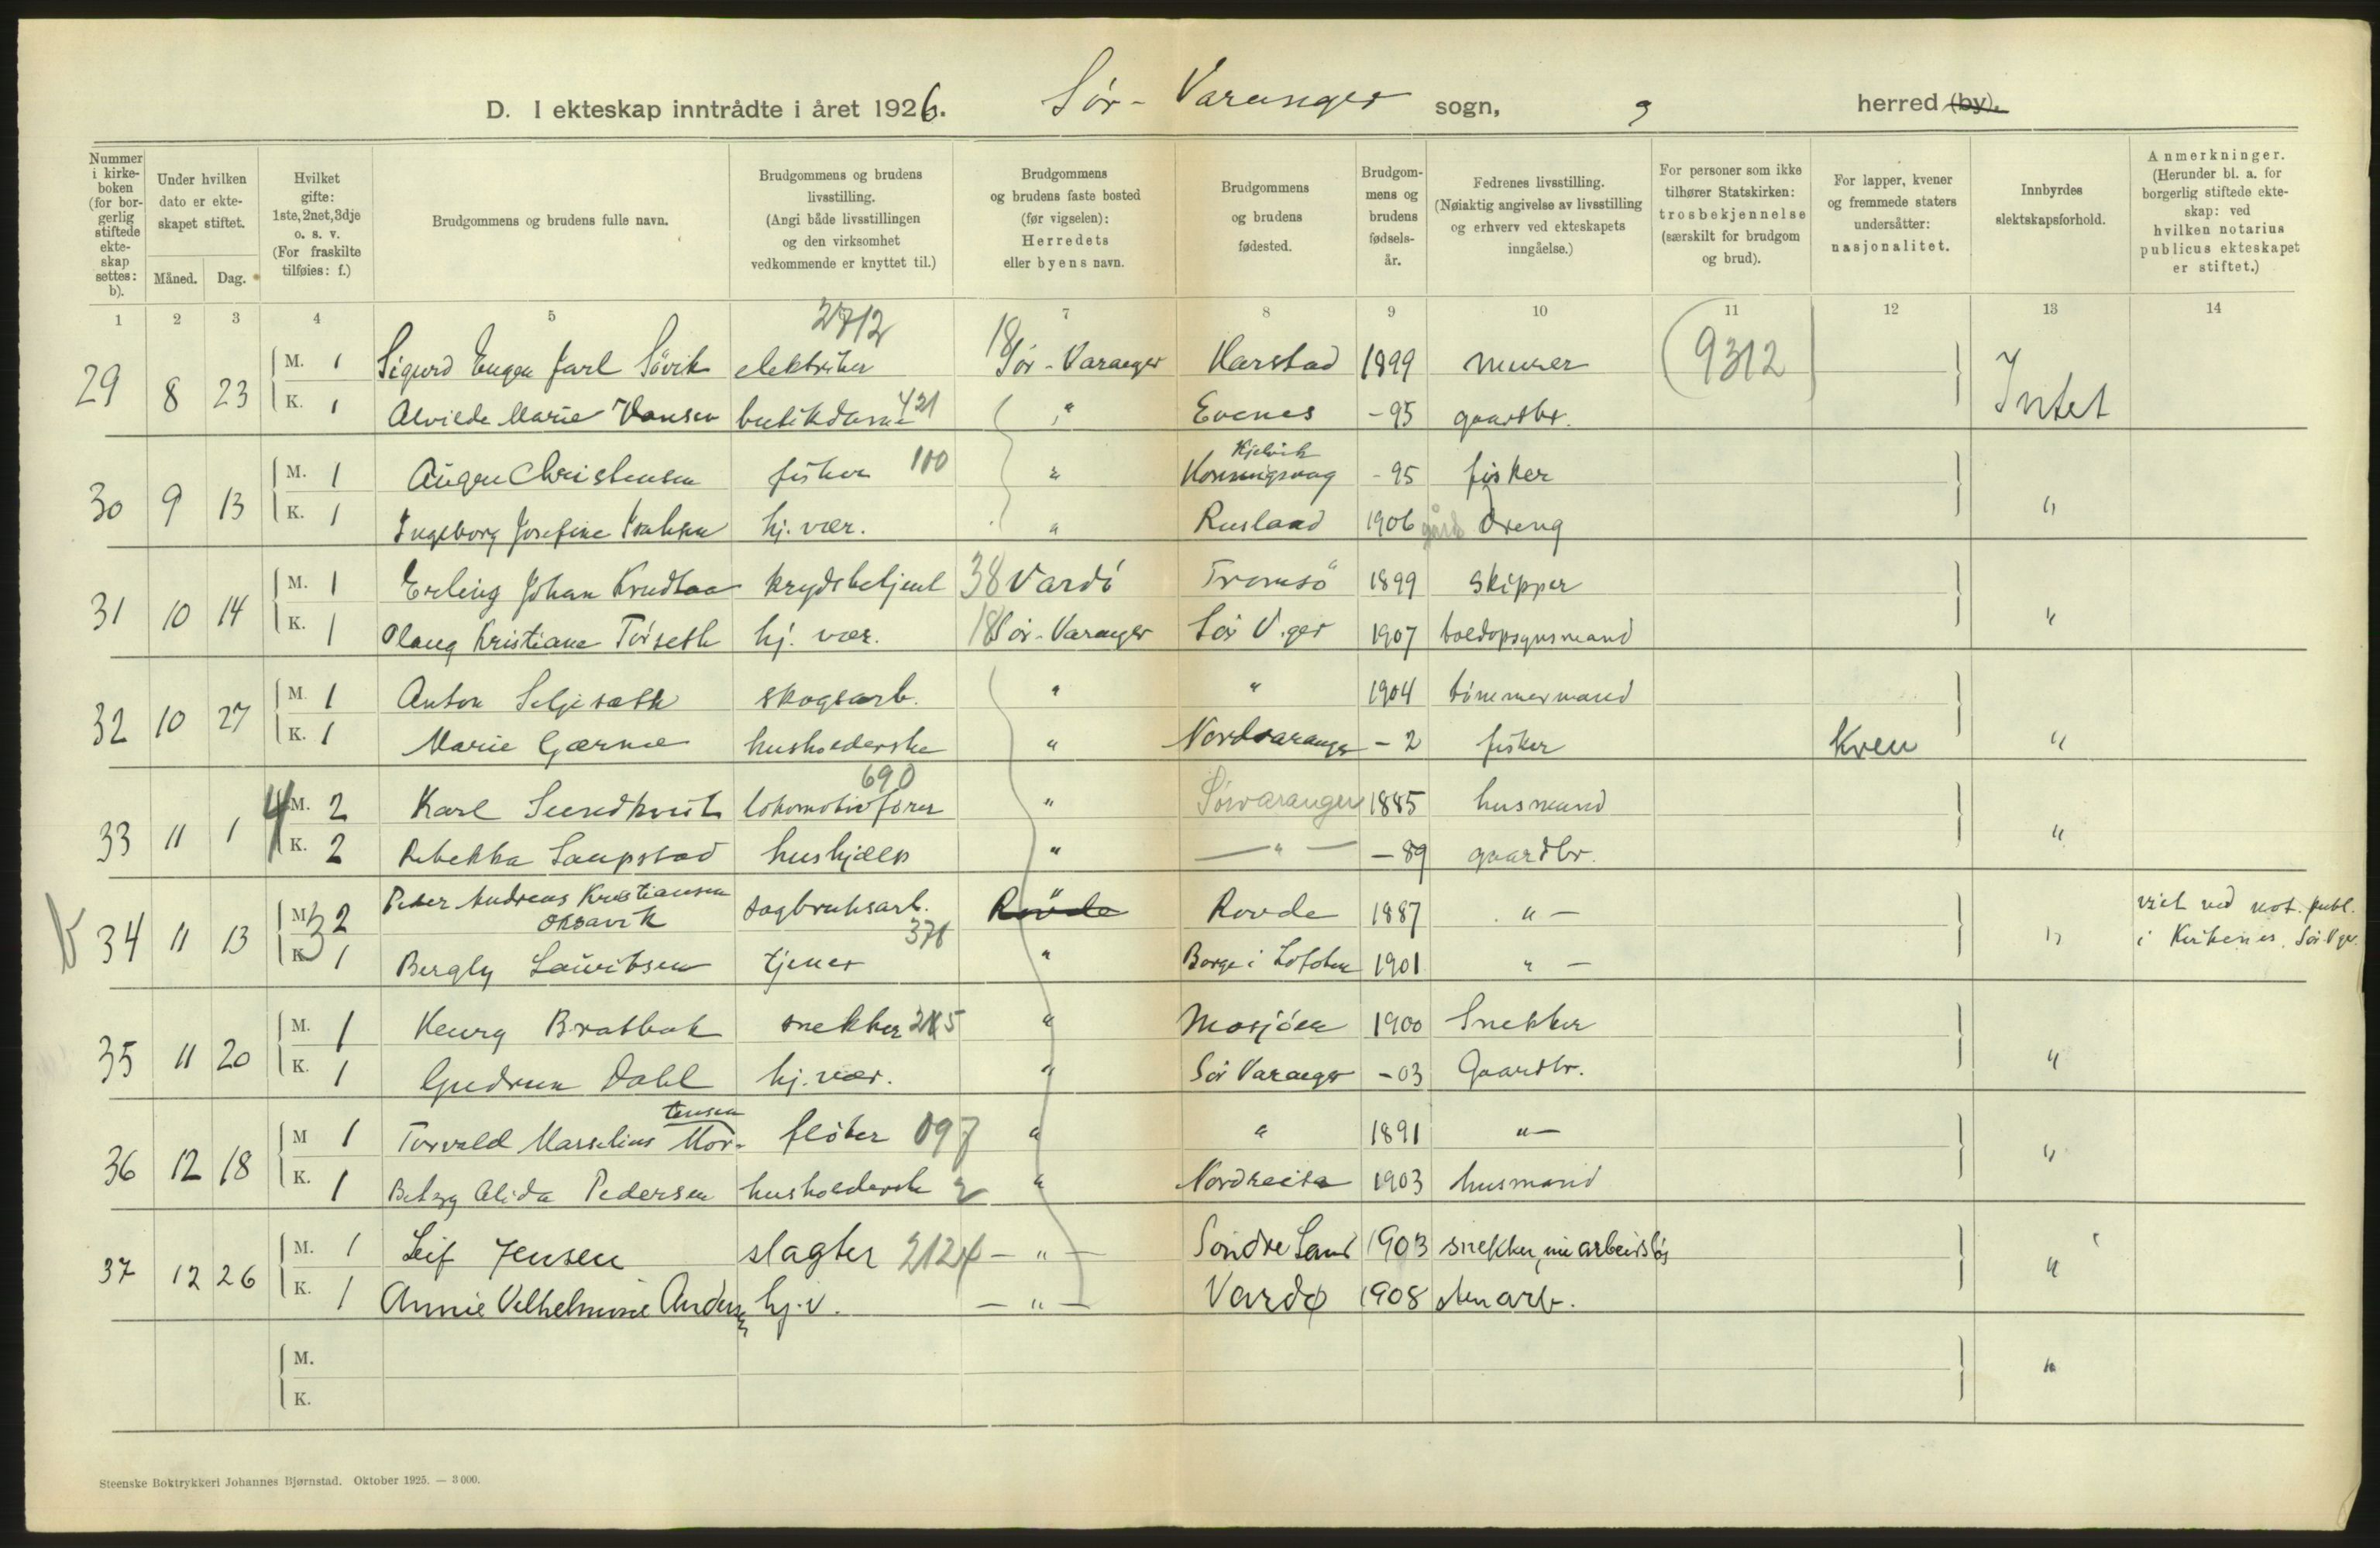 D. I ekteskap inntrådte i året 1926. Sør-Varanger sogn, " herred (by).
Nummer i kirkeboken (for borgerlig stiftede ekteskap settes: b).
Under hvilken dato er ekteskapet stiftet.
Måned. Dag.
Hvilket gifte: 1ste, 2net, 3dje o. s. v. (For fraskilte tilføies: f.)
Brudgommens og brudens fulle navn.
Brudgommens og brudens livsstilling. (Angi både livsstillingen og den virksomhet vedkommende er knyttet til.)
Brudgommens og brudens faste bosted (før vigselen): Herredets eller byens navn.
Brudgommens og brudens fødested.
Brudgommens og brudens fødselsår.
Fedrenes livsstilling. (Nøiaktig angivelse av livsstilling og erhverv ved ekteskapets inngåelse.)
For personer som ikke tilhører Statskirken: trosbekjennelse (særskilt for brudgom og brud).
For lapper, kvener og fremmede staters undersåtter: nasjonalitet.
Innbyrdes slektskapsforhold.
Anmerkninger. (Herunder bl. a. for borgerlig stiftede ekteskap: ved hvilken notarius publicus ekteskapet er stiftet.)
1 2 3 4 5 7 8 9 10 11 12 13 14
2712
29 8 23 M. 1 Sigurd Eugen Jarl Søvik elektriker 18 Sør-Varanger Harstad 1899 murer (9312) Intet
K. 1 Alvilde Marie Hansen butikdame 421 " Evenes -95 gaardbr.
30 9 13 M. 1 Augen Christensen fisker 100 " Kjelvik Honningsvag -95 fisker "
K. 1 Ingeborg Josefine hj. vær. " Rusland 1906 gårds dreng
31 10 14 M. 1 Erling Johan Knudtaa krydsbetjent 38 Vardö Tromsö 1899 Skipper "
K. 1 Olaug Kristiane Törseth hj. vær. 18 Sör-Varanger Sör V.ger 1907 toldopsynsmand
32 10 27 M. 1 Anton Seljesæth skogsarb. " " 1904 tömmermand
K. 1 Marie Gærnæ husholderske " Nordvaranger -2 fisker Kven "
33 11 1 4 M. 2 Karl Sundkvist lokomotivförer 690 " Sörvaranger 1885 husmand "
K. 2 Rebekka Laupstad hushjælp " — " — -89 gaardbr.
b 34 11 13 M. 3 2 Peder Andreas Kristiansen Oksavik sagbruksarb. 376 Røvde Rovde 1887 " — " viet ved not. publ.
K. 1 Bergly Lauritsen tjener " Borge i Lofoten 1901 " — i Kirkenes, Sör V.ger.
35 11 20 M. 1 Henry Bratbak snekker 215 " Mosjöen 1900 Snekker "
K. 1 Gudrun Dahl hj. vær. " Sör Varanger -03 Gaardbr.
36 12 18 M 1 Torvald Marselius Mortensen flöter 097 " " 1891 " — "
K. 1 Betzy Alida Pedersen husholdersk 2 " Nordreisa 1903 husmand
37 12 26 M. 1 Leif Jensen slagter 212 — " — Söndre Land 1903 snekker, nu arbeidsløs "
K. 1 Annie Vilhelmine Andersen hj. v. — " — Vardø 1908 sten arb.
M. "
K.
Steenske Boktrykkeri Johannes Bjørnstad. Oktober 1925. — 3 000.